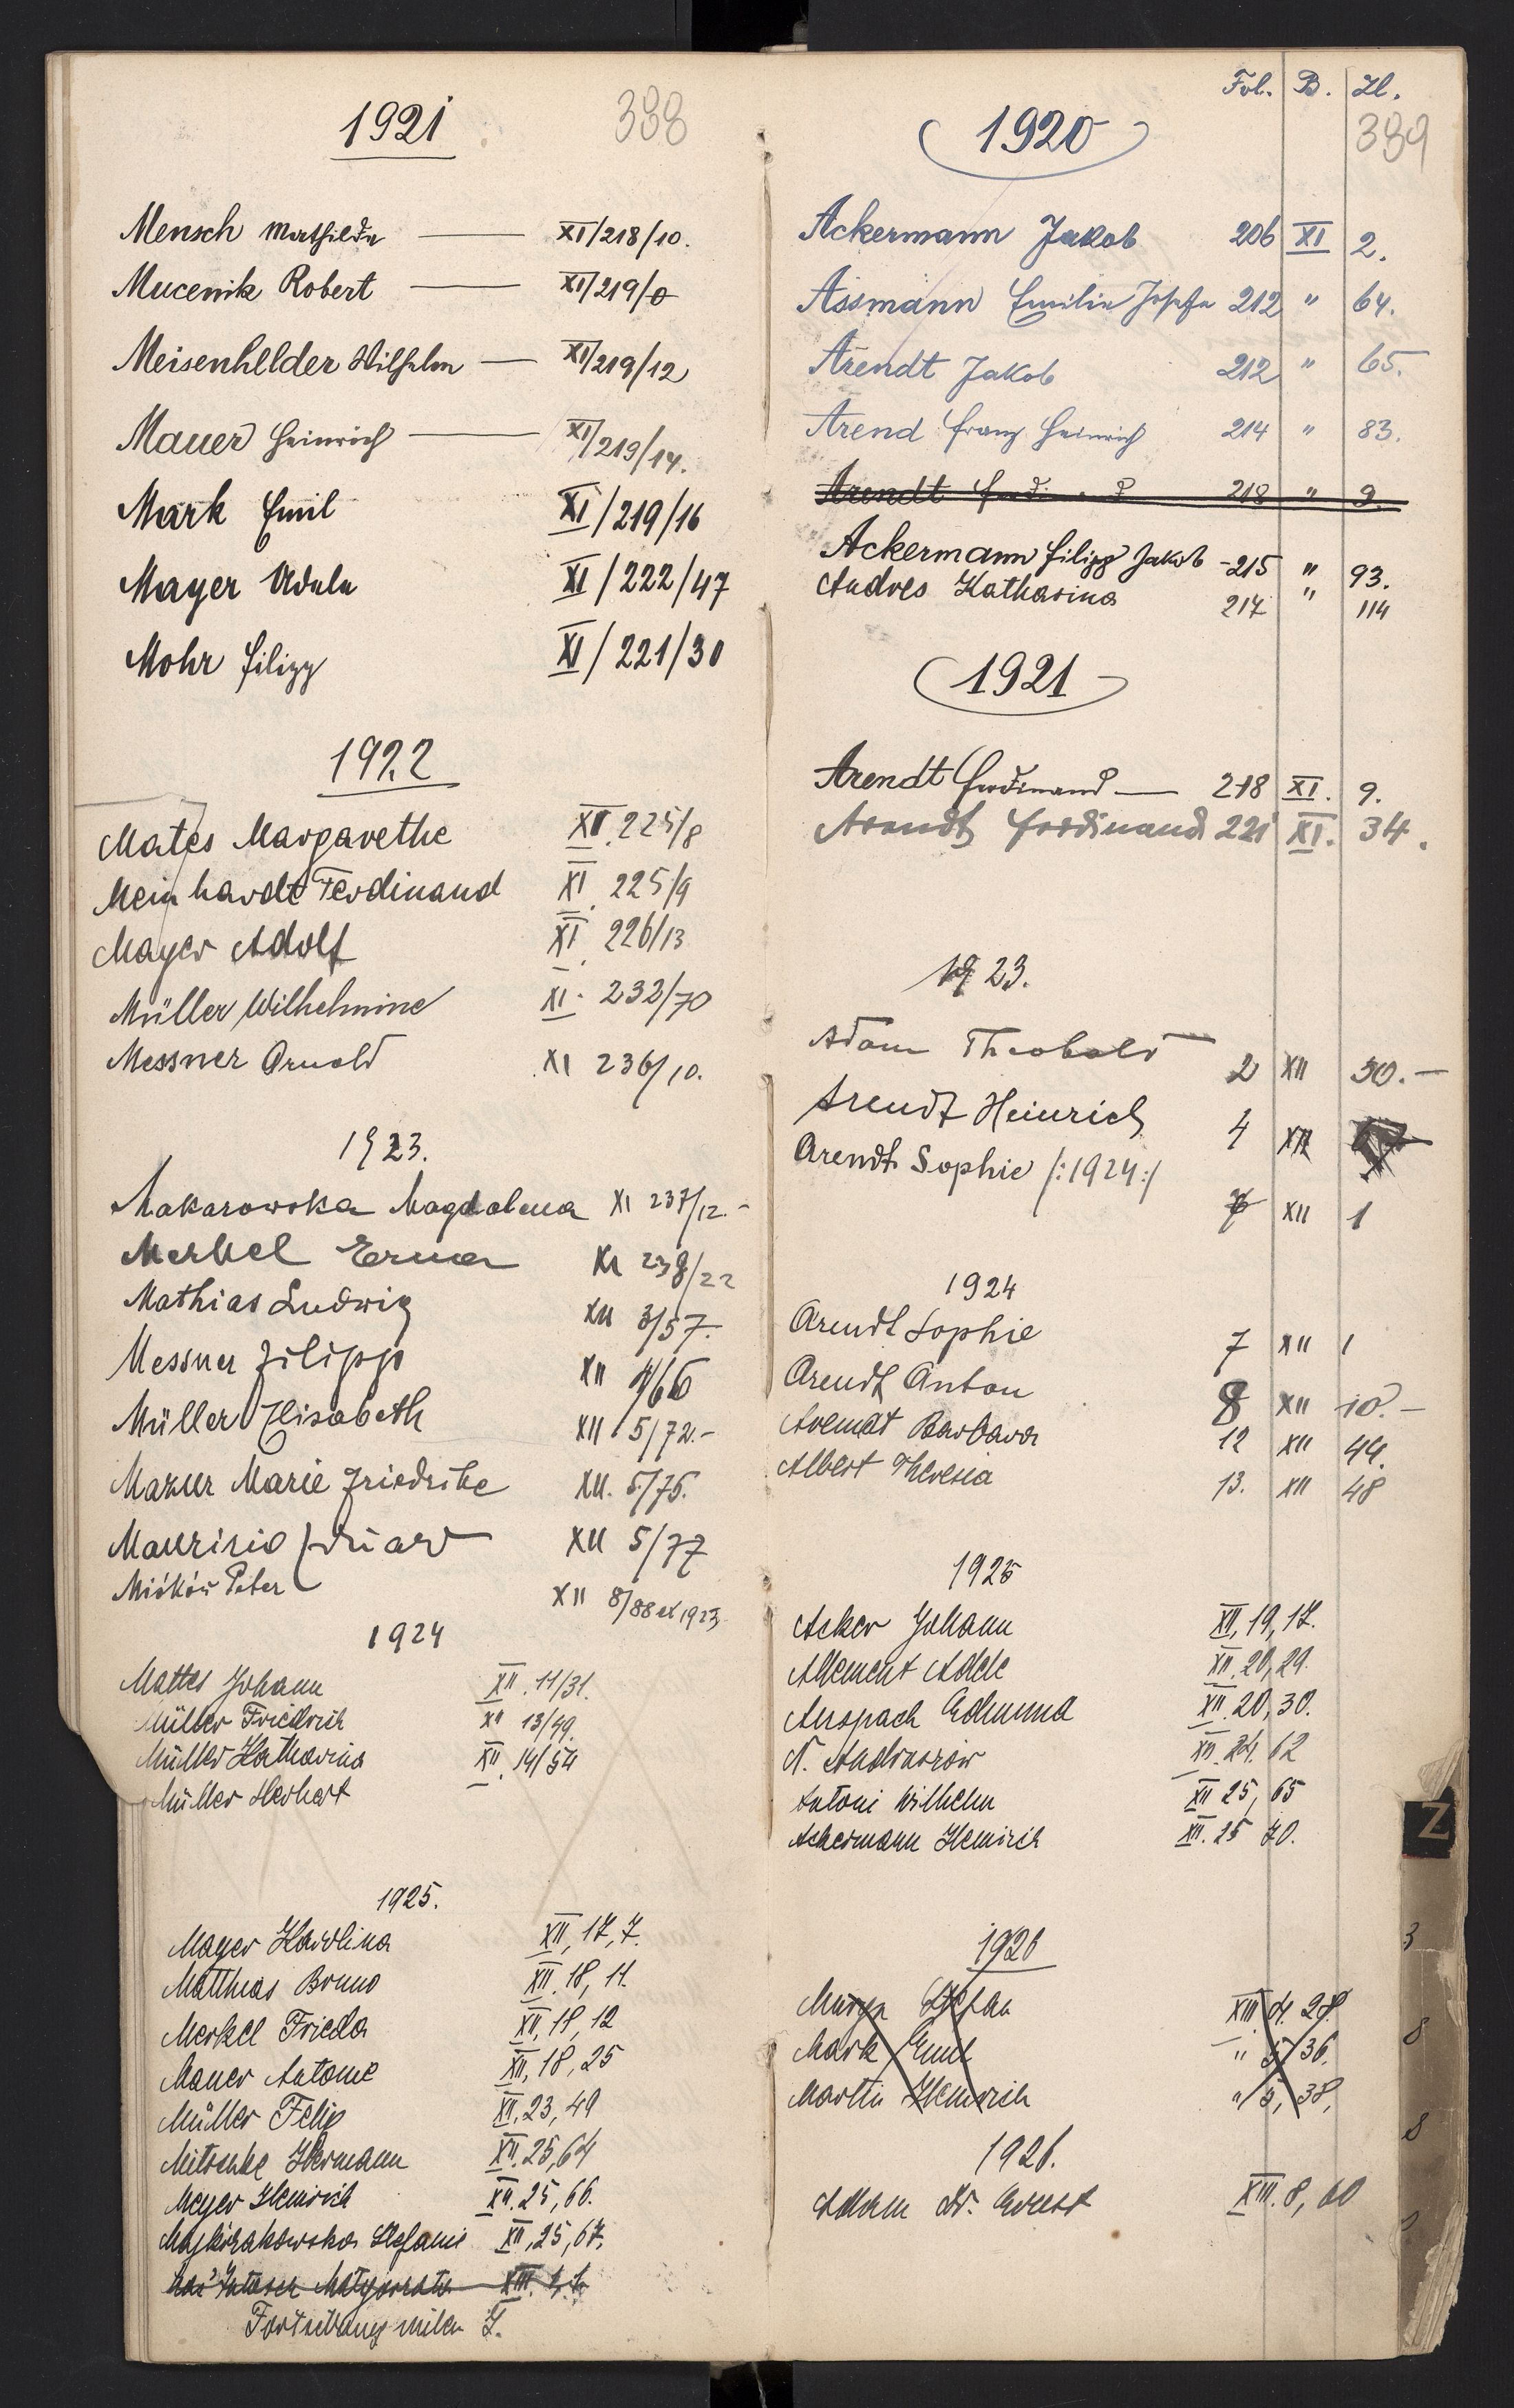 1921
388
Mensch Mathilde — XI/218/10.
Mucenik Robert — XI/219/0
Meisenhelder Wilhelm — XI/219/12
Mauer Heinrich — XI/219/14.
Mark Emil XI/219/16
Mayer Adele XI/222/47
Mohr Filipp XI/221/30
1922
Mates Margarethe XI. 225/8
Meinhardt Ferdinand XI. 225/9
Mayer Adolf XI. 226/13
Müller Wilhelmine XI. 232/70
Messner Arnold XI 236/10.
1923.
Makarowska Magdalena XI 237/12.-
Merkel Erna XI 238/22
Mathias Ludwig XII 3/57.
Messner Filipp XII 4/66
Müller Elisabeth XII 5/72.-
Mazur Marie Friedrike XII. 5/75.
Maurizio Eduard XII 5/77
Miśków Peter XII 8/88 ex 1923
1924
Mattes Johann XII. 11/31.
Müller Friedrich XII 13/49.
Müller Katharina XII. 14/54
Müller Herbert
1925.
Mayer Karolina XII, 17, 7.
Matthias Bruno XII. 18, 11.
Merkel Frieda XII, 18, 12
Mauer Antonie XII, 18, 25
Müller Felix XII, 23, 49
Mitschke Hermann XII. 25, 64
Meyer Heinrich XII. 25, 66.
Stefanie XII, 25, 67.
XIII. 1, 1.
Fortsetzung
Fol. B. Zl.
389
1920
Ackermann Jakob 206 XI 2.
Assmann Emilie Josefa 212 " 64.
Arendt Jakob 212 " 65.
Arend Franz Heinrich 214 " 83.
Arendt Ferdinand 218 " 9.
Ackermann Filipp Jakob - 215 " 93.
Andres Katharina 217 " 114
1921
Arendt Ferdinand — 218 XI. 9.
Arendt Ferdinand 221 XI. 34.
1923.
Adam Theobald 2 XII 30.-
Arendt Heinrich 4 XII
Arendt Sophie /:1924:/ 7 XII 1
1924
Arendt Sophie 7 XII 1
Arendt Anton 8 XII 10.-
Arendt Barbara 12 XII 44.
Albert Theresia 13. XII 48
1925
Acker Johann XII, 19, 17.
Allement Adele XII. 20, 29.
Anspach Edmund XII. 20, 30.
N. Andruszów XII. 24. 62
Antoni Wilhelm XII 25, 65
Ackermann Heinrich XII. 25 70.
1926
Stefan XIII. 4. 28.
Mark Emil " 5/36.
Martin Heinrich " 5, 38,
1926.
Adam Dr. Ernest XIII. 8, 60
Z
3
8
8